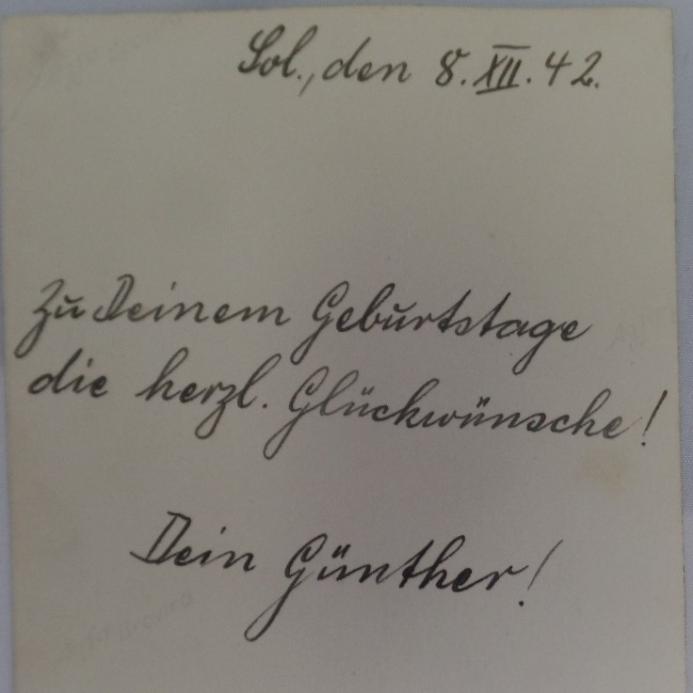 Sol., den 8. XII. 42.
Zu Deinem Geburtstage
die herzl. Glückwünsche!
Dein Günther!